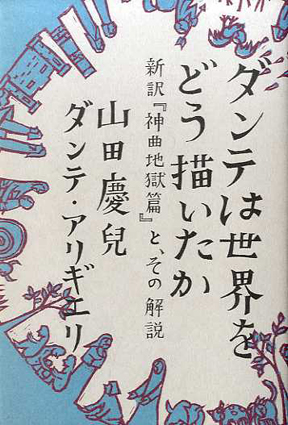 ダンテは世界を
どう描いたか
新訳『神曲地獄篇』と、その解説
山田慶兒
ダンテ・アリギエリ